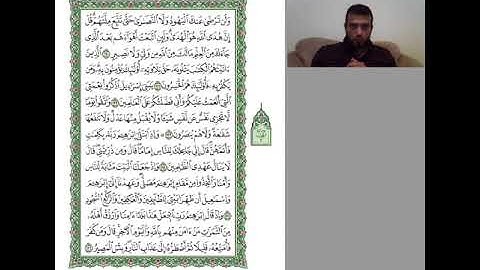 وَلَن تَرْضَىٰ عَنكَ ٱلْيَهُودُ وَلَا ٱلنَّصَٰرَىٰ حَتَّىٰ تَتَّبِعَ مِلَّتَهُمْ ۗ قُلْ
إِنَّ هُدَى ٱللَّهِ هُوَ ٱلْهُدَىٰ ۗ وَلَئِنِ ٱتَّبَعْتَ أَهْوَآءَهُم بَعْدَ ٱلَّذِى
جَآءَكَ مِنَ ٱلْعِلْمِ ۙ مَا لَكَ مِنَ ٱللَّهِ مِن وَلِىٍّ وَلَا نَصِيرٍ ١٢٠ ٱلَّذِينَ
ءَاتَيْنَٰهُمُ ٱلْكِتَٰبَ يَتْلُونَهُۥ حَقَّ تِلَاوَتِهِۦٓ أُو۟لَٰٓئِكَ يُؤْمِنُونَ بِهِۦ ۗ وَمَن
يَكْفُرْ بِهِۦ فَأُو۟لَٰٓئِكَ هُمُ ٱلْخَٰسِرُونَ ١٢١ يَٰبَنِىٓ إِسْرَٰٓءِيلَ ٱذْكُرُوا۟ نِعْمَتِىَ
ٱلَّتِىٓ أَنْعَمْتُ عَلَيْكُمْ وَأَنِّى فَضَّلْتُكُمْ عَلَى ٱلْعَٰلَمِينَ ١٢٢ وَٱتَّقُوا۟ يَوْمًا
لَّا تَجْزِى نَفْسٌ عَن نَّفْسٍ شَيْـًٔا وَلَا يُقْبَلُ مِنْهَا عَدْلٌ وَلَا تَنفَعُهَا
شَفَٰعَةٌ وَلَا هُمْ يُنصَرُونَ ١٢٣ وَإِذِ ٱبْتَلَىٰٓ إِبْرَٰهِۦمَ رَبُّهُۥ بِكَلِمَٰتٍ
فَأَتَمَّهُنَّ ۖ قَالَ إِنِّى جَاعِلُكَ لِلنَّاسِ إِمَامًا ۖ قَالَ وَمِن ذُرِّيَّتِى ۖ قَالَ
لَا يَنَالُ عَهْدِى ٱلظَّٰلِمِينَ ١٢٤ وَإِذْ جَعَلْنَا ٱلْبَيْتَ مَثَابَةً لِّلنَّاسِ
وَأَمْنًا وَٱتَّخِذُوا۟ مِن مَّقَامِ إِبْرَٰهِۦمَ مُصَلًّى ۖ وَعَهِدْنَآ إِلَىٰٓ إِبْرَٰهِۦمَ
وَإِسْمَٰعِيلَ أَن طَهِّرَا بَيْتِىَ لِلطَّآئِفِينَ وَٱلْعَٰكِفِينَ وَٱلرُّكَّعِ ٱلسُّجُودِ
١٢٥ وَإِذْ قَالَ إِبْرَٰهِۦمُ رَبِّ ٱجْعَلْ هَٰذَا بَلَدًا ءَامِنًا وَٱرْزُقْ أَهْلَهُۥ
مِنَ ٱلثَّمَرَٰتِ مَنْ ءَامَنَ مِنْهُم بِٱللَّهِ وَٱلْيَوْمِ ٱلْءَاخِرِ ۖ قَالَ وَمَن كَفَرَ
فَأُمَتِّعُهُۥ قَلِيلًا ثُمَّ أَضْطَرُّهُۥٓ إِلَىٰ عَذَابِ ٱلنَّارِ ۖ وَبِئْسَ ٱلْمَصِيرُ ١٢٦